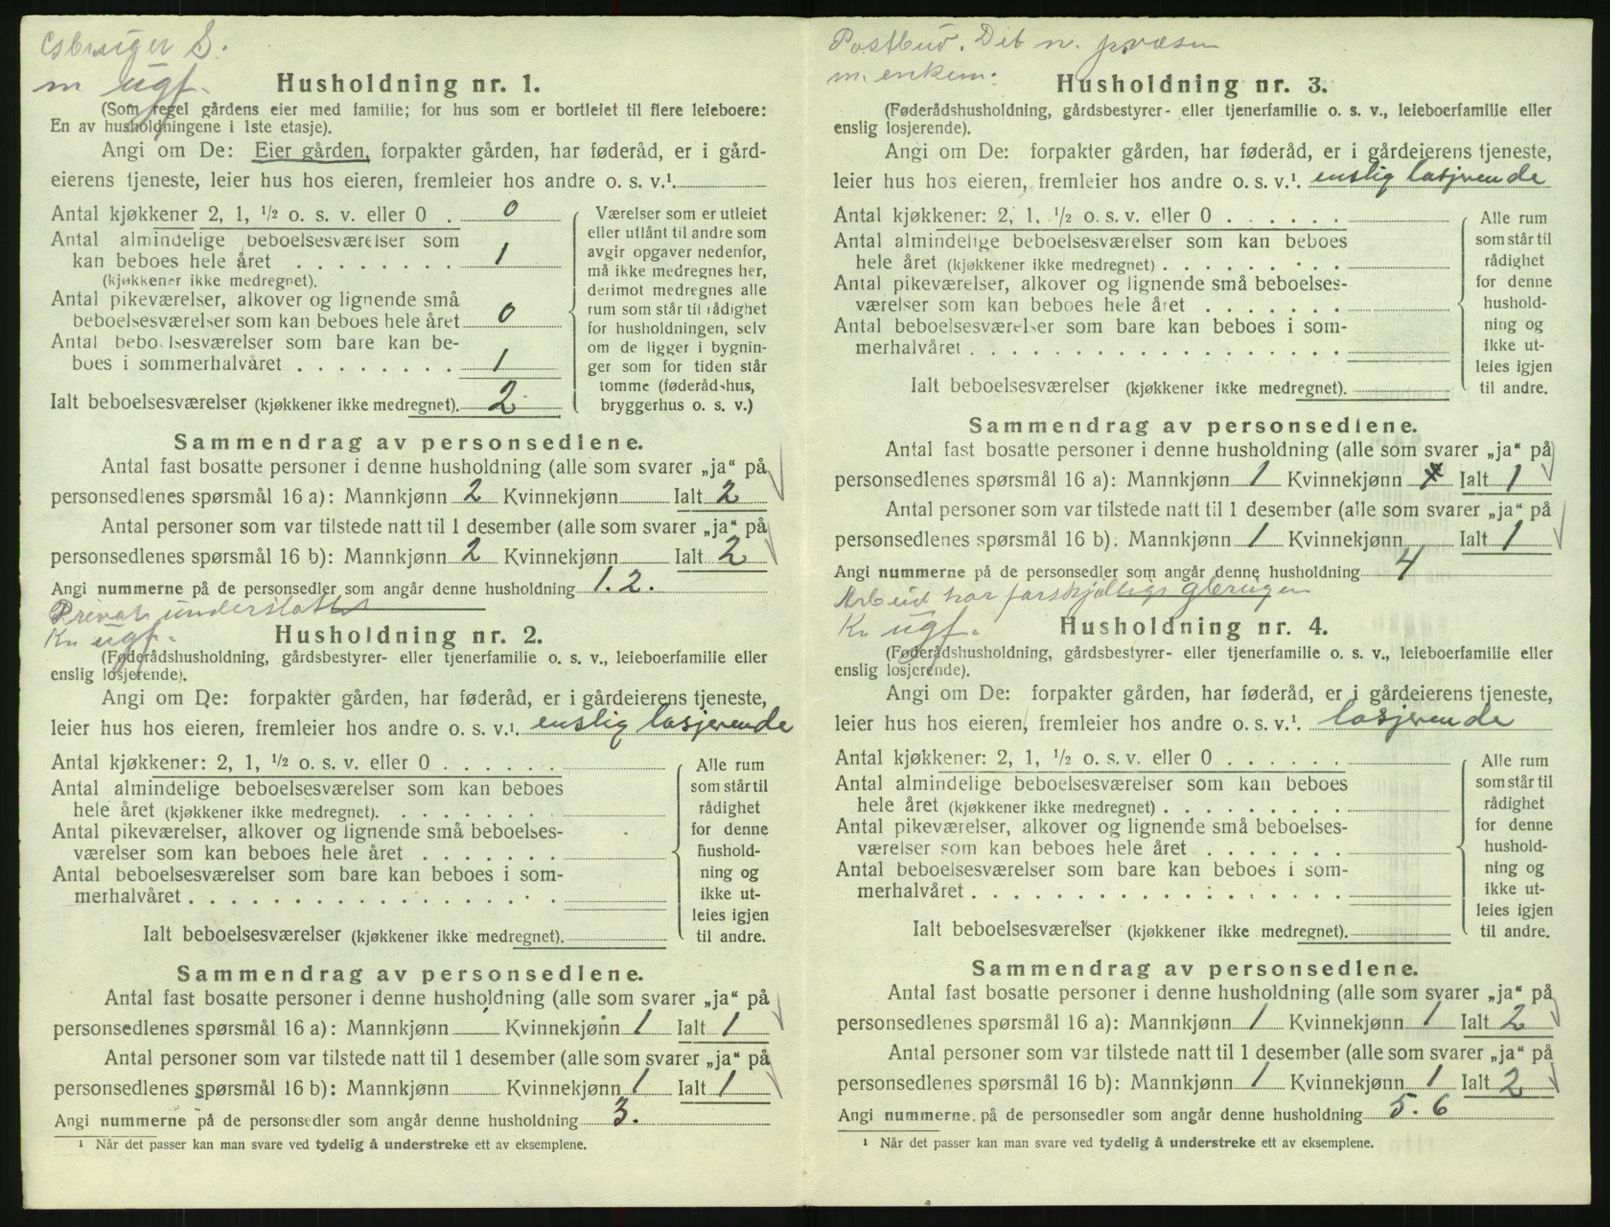 Gbruger S.
m ugf.
Husholdning nr. 1.
(Som regel gårdens eier med familie; for hus som er bortleiet til flere leieboere:
En av husholdningene i 1ste etasje).
Angi om De: Eier gården, forpakter gården, har føderåd, er i gård-
eierens tjeneste, leier hus hos eieren, fremleier hos andre o. s. v.¹.
Antal kjøkkener 2, 1, ½ o. s. v. eller 0 . 0
Antal almindelige beboelsesværelser som
kan beboes hele året . . . . . . . . 1
(kjøkkener ikke medregnet).
Antal pikeværelser, alkover og lignende små
beboelsesværelser som kan beboes hele året 0
Antal beboelsesværelser som bare kan be-
boes i sommerhalvåret . . . . . . . . 1
Ialt beboelsesværelser (kjøkkener ikke medregnet). 2
Værelser som er utleiet
eller utlånt til andre som
avgir opgaver nedenfor,
må ikke medregnes her,
derimot medregnes alle
rum som står til rådighet
for husholdningen, selv
om de ligger i bygnin-
ger som for tiden står
tomme (føderåds­hus,
bryggerhus o. s. v.)
Sammendrag av personsedlene.
Antal fast bosatte personer i denne husholdning (alle som svarer „ja“ på
personsedlenes spørsmål 16 a): Mannkjønn 2 Kvinnekjønn Ialt 2
Antal personer som var tilstede natt til 1 desember (alle som svarer „ja“ på
personsedlenes spørsmål 16 b): Mannkjønn 2 Kvinnekjønn Ialt 2
Angi nummerne på de personsedler som angår denne husholdning 1. 2.
Privat understøttet
Kv ugf.
Husholdning nr. 2.
(Føderådshusholdning, gårdsbestyrer- eller tjenerfamilie o. s. v., leieboerfamilie eller
enslig losjerende).
Angi om De: forpakter gården, har føderåd, er i gårdeierens tjeneste,
leier hus hos eieren, fremleier hos andre o. s. v.¹. enslig losjerende
Antal kjøkkener: 2, 1, ½ o. s. v. eller 0 . . . . . .
Antal almindelige beboelsesværelser som kan beboes
hele året (kjøkkener ikke medregnet). . . . . . . . .
Antal pikeværelser, alkover og lignende små beboelses-
værelser som kan beboes hele året . . . . . . .
Antal beboelsesværelser som bare kan beboes i som-
merhalvåret . . . . . . . . . . . . . . . . . .
Ialt beboelsesværelser (kjøkkener ikke medregnet).
Alle rum
som står til
rådighet
for denne
hushold-
ning og
ikke ut-
leies igjen
til andre.
Sammendrag av personsedlene.
Antal fast bosatte personer i denne husholdning (alle som svarer „ja“ på
personsedlenes spørsmål 16 a): Mannkjønn Kvinnekjønn 1 Ialt 1
Antal personer som var tilstede natt til 1 desember (alle som svarer „ja“ på
personsedlenes spørsmål 16 b): Mannkjønn Kvinnekjønn 1 Ialt 1
Angi nummerne på de personsedler som angår denne husholdning 3.
¹ Når det passer kan man svare ved tydelig å understreke ett av eksemplene.
Postbud. Det n.
m. enkem.
Husholdning nr. 3.
(Føderådshusholdning, gårdsbestyrer- eller tjenerfamilie o. s. v., leieboerfamilie eller
enslig losjerende).
Angi om De: forpakter gården, har føderåd, er i gårdeierens tjeneste,
leier hus hos eieren, fremleier hos andre o. s. v.¹. enslig losjerende
Antal kjøkkener: 2, 1, ½ o. s. v. eller 0 . . . . . .
Antal almindelige beboelsesværelser som kan beboes
hele året (kjøkkener ikke medregnet) . . . . . . . . .
Antal pikeværelser, alkover og lignende små beboelses-
værelser som kan beboes hele året . . . . . . .
Antal beboelsesværelser som bare kan beboes i som-
merhalvåret . . . . . . . . . . . . . . . . . .
Ialt beboelsesværelser (kjøkkener ikke medregnet).
Alle rum
som står til
rådighet
for denne
hushold-
ning og
ikke ut-
leies igjen
til andre.
Sammendrag av personsedlene.
Antal fast bosatte personer i denne husholdning (alle som svarer „ja“ på
personsedlenes spørsmål 16 a): Mannkjønn 1 Kvinnekjønn Ialt 1
Antal personer som var tilstede natt til 1 desember (alle som svarer „ja“ på
personsedlenes spørsmål 16 b). Mannkjønn 1 Kvinnekjønn Ialt 1
Angi nummerne på de personsedler som angår denne husholdning 4
Arbeid har forskjellig gbrugen
Kv ugf.
Husholdning nr. 4.
(Føderådshusholdning, gårdsbestyrer- eller tjenerfamilie o. s. v., leieboerfamilie eller
enslig losjerende).
Angi om De: forpakter gården, har føderåd, er i gårdeierens tjeneste,
leier hus hos eieren, fremleier hos andre o. s. v.¹. losjerende
Antal kjøkkener: 2, 1, ½ o. s. v. eller 0 . . . . . .
Antal almindelige beboelsesværelser som kan beboes
hele året (kjøkkener ikke medregnet) . . . . . . . . .
Antal pikeværelser, alkover og lignende små beboelses-
værelser som kan beboes hele året . . . . . . .
Antal beboelsesværelser som bare kan beboes i som-
merhalvåret . . . . . . . . . . . . . . . . . .
Ialt beboelsesværelser (kjøkkener ikke medregnet).
Alle rum
som står til
rådighet
for denne
hushold-
ning og
ikke ut-
leies igjen
til andre.
Sammendrag av personsedlene.
Antal fast bosatte personer i denne husholdning (alle som svarer „ja“ på
personsedlenes spørsmål 16 a): Mannkjønn 1 Kvinnekjønn 1 Ialt 2
Antal personer som var tilstede natt til 1 desember (alle som svarer „ja“ på
personsedlenes spørsmål 16 b): Mannkjønn 1 Kvinnekjønn 1 Ialt 2
Angi nummerne på de personsedler som angår denne husholdning 5. 6
¹ Når det passer kan man svare ved tydelig å understreke ett av eksemplene.